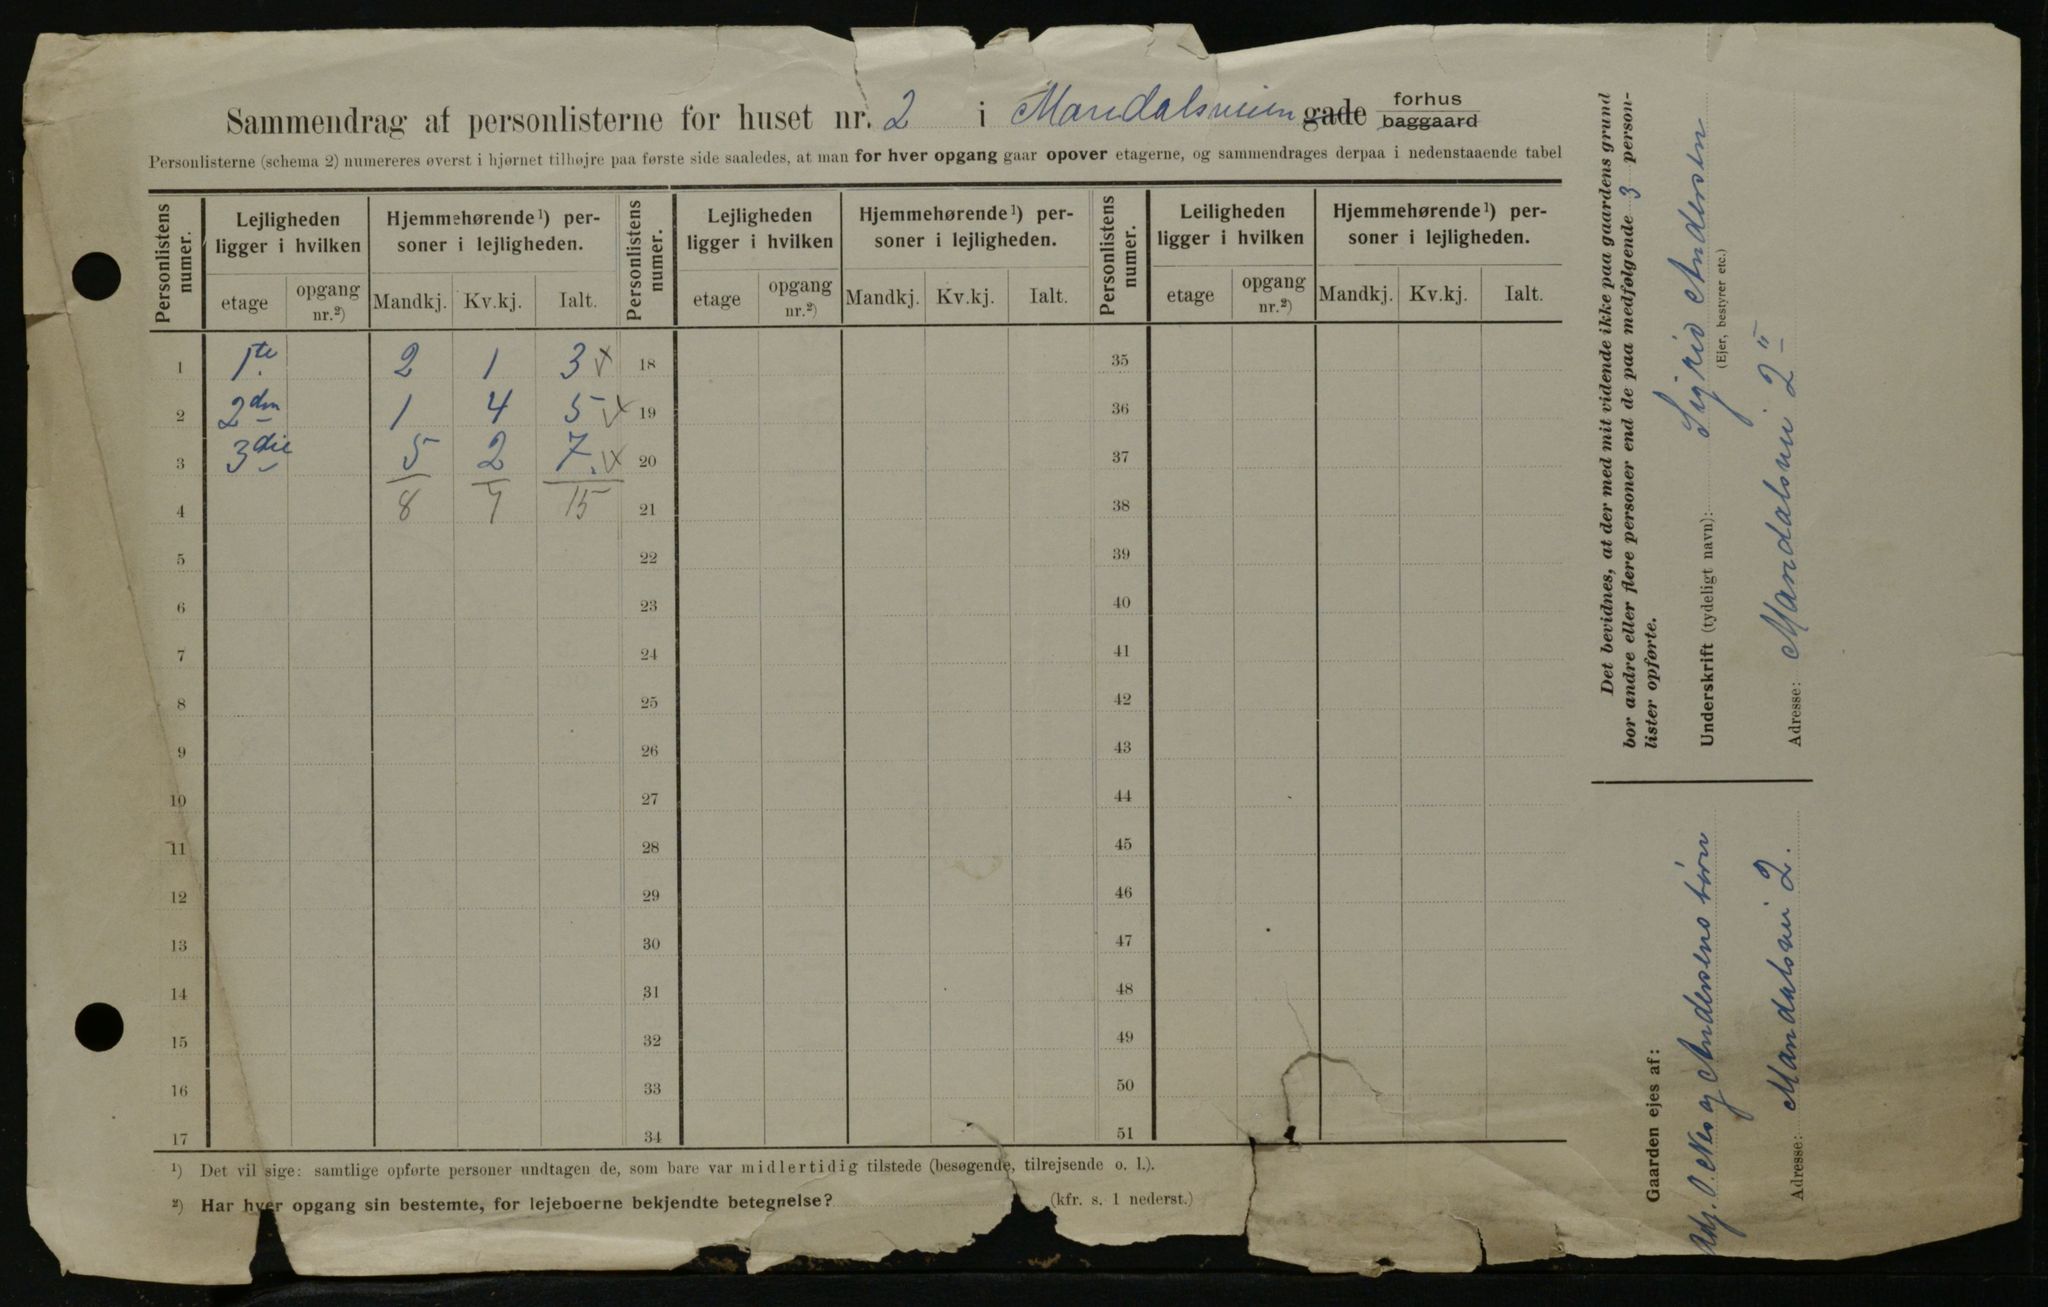 Sammendrag af personlisterne for huset nr. 2 i Mandalsveien gade forhus baggaard
Personlisterne (schema 2) numereres øverst i hjørnet tilhøjre paa første side saaledes, at man for hver opgang gaar opover etagerne, og sammendrages derpaa i nedenstaaende tabel
Personlistens numer. Lejligheden ligger i hvilken Hjemmehørende¹) personer i lejligheden. Personlistens numer. Lejligheden ligger i hvilken Hjemmehørende¹) personer i lejligheden. Personlistens numer. Leiligheden ligger i hvilken Hjemmehørende¹) personer i lejligheden.
etage opgang nr.²) Mandkj. Kv.kj. Ialt. etage opgang nr.²) Mandkj. Kv.kj. Ialt. etage opgang nr.²) Mandkj. Kv.kj. Ialt.
1 1.te 2 1 3 18 35
2 2den 1 4 5 19 36
3 3die 5 2 7. 20 37
4 8 7 15 21 38
5 22 39
6 23 40
7 24 41
8 25 42
9 26 43
10 27 44
11 28 45
12 29 46
13 30 47
14 31 48
15 32 49
16 33 50
17 34 51
¹) Det vil sige: samtlige opførte personer undtagen de, som bare var midlertidig tilstede (besøgende, tilrejsende o. l.).
²) Har hver opgang sin bestemte, for lejeboerne bekjendte betegnelse? (kfr. s. 1 nederst.)
Det bevidnes, at der med mit vidende ikke paa gaardens grund
bor andre eller flere personer end de paa medfølgende 3 person-
lister opførte.
Underskrift (tydeligt navn): Sigrid Andersen
(Ejer, bestyrer etc.)
Adresse: Mandalsvei 2 II
Gaarden ejes af:
og Andersens børn
Adresse: Mandalsvei 2.